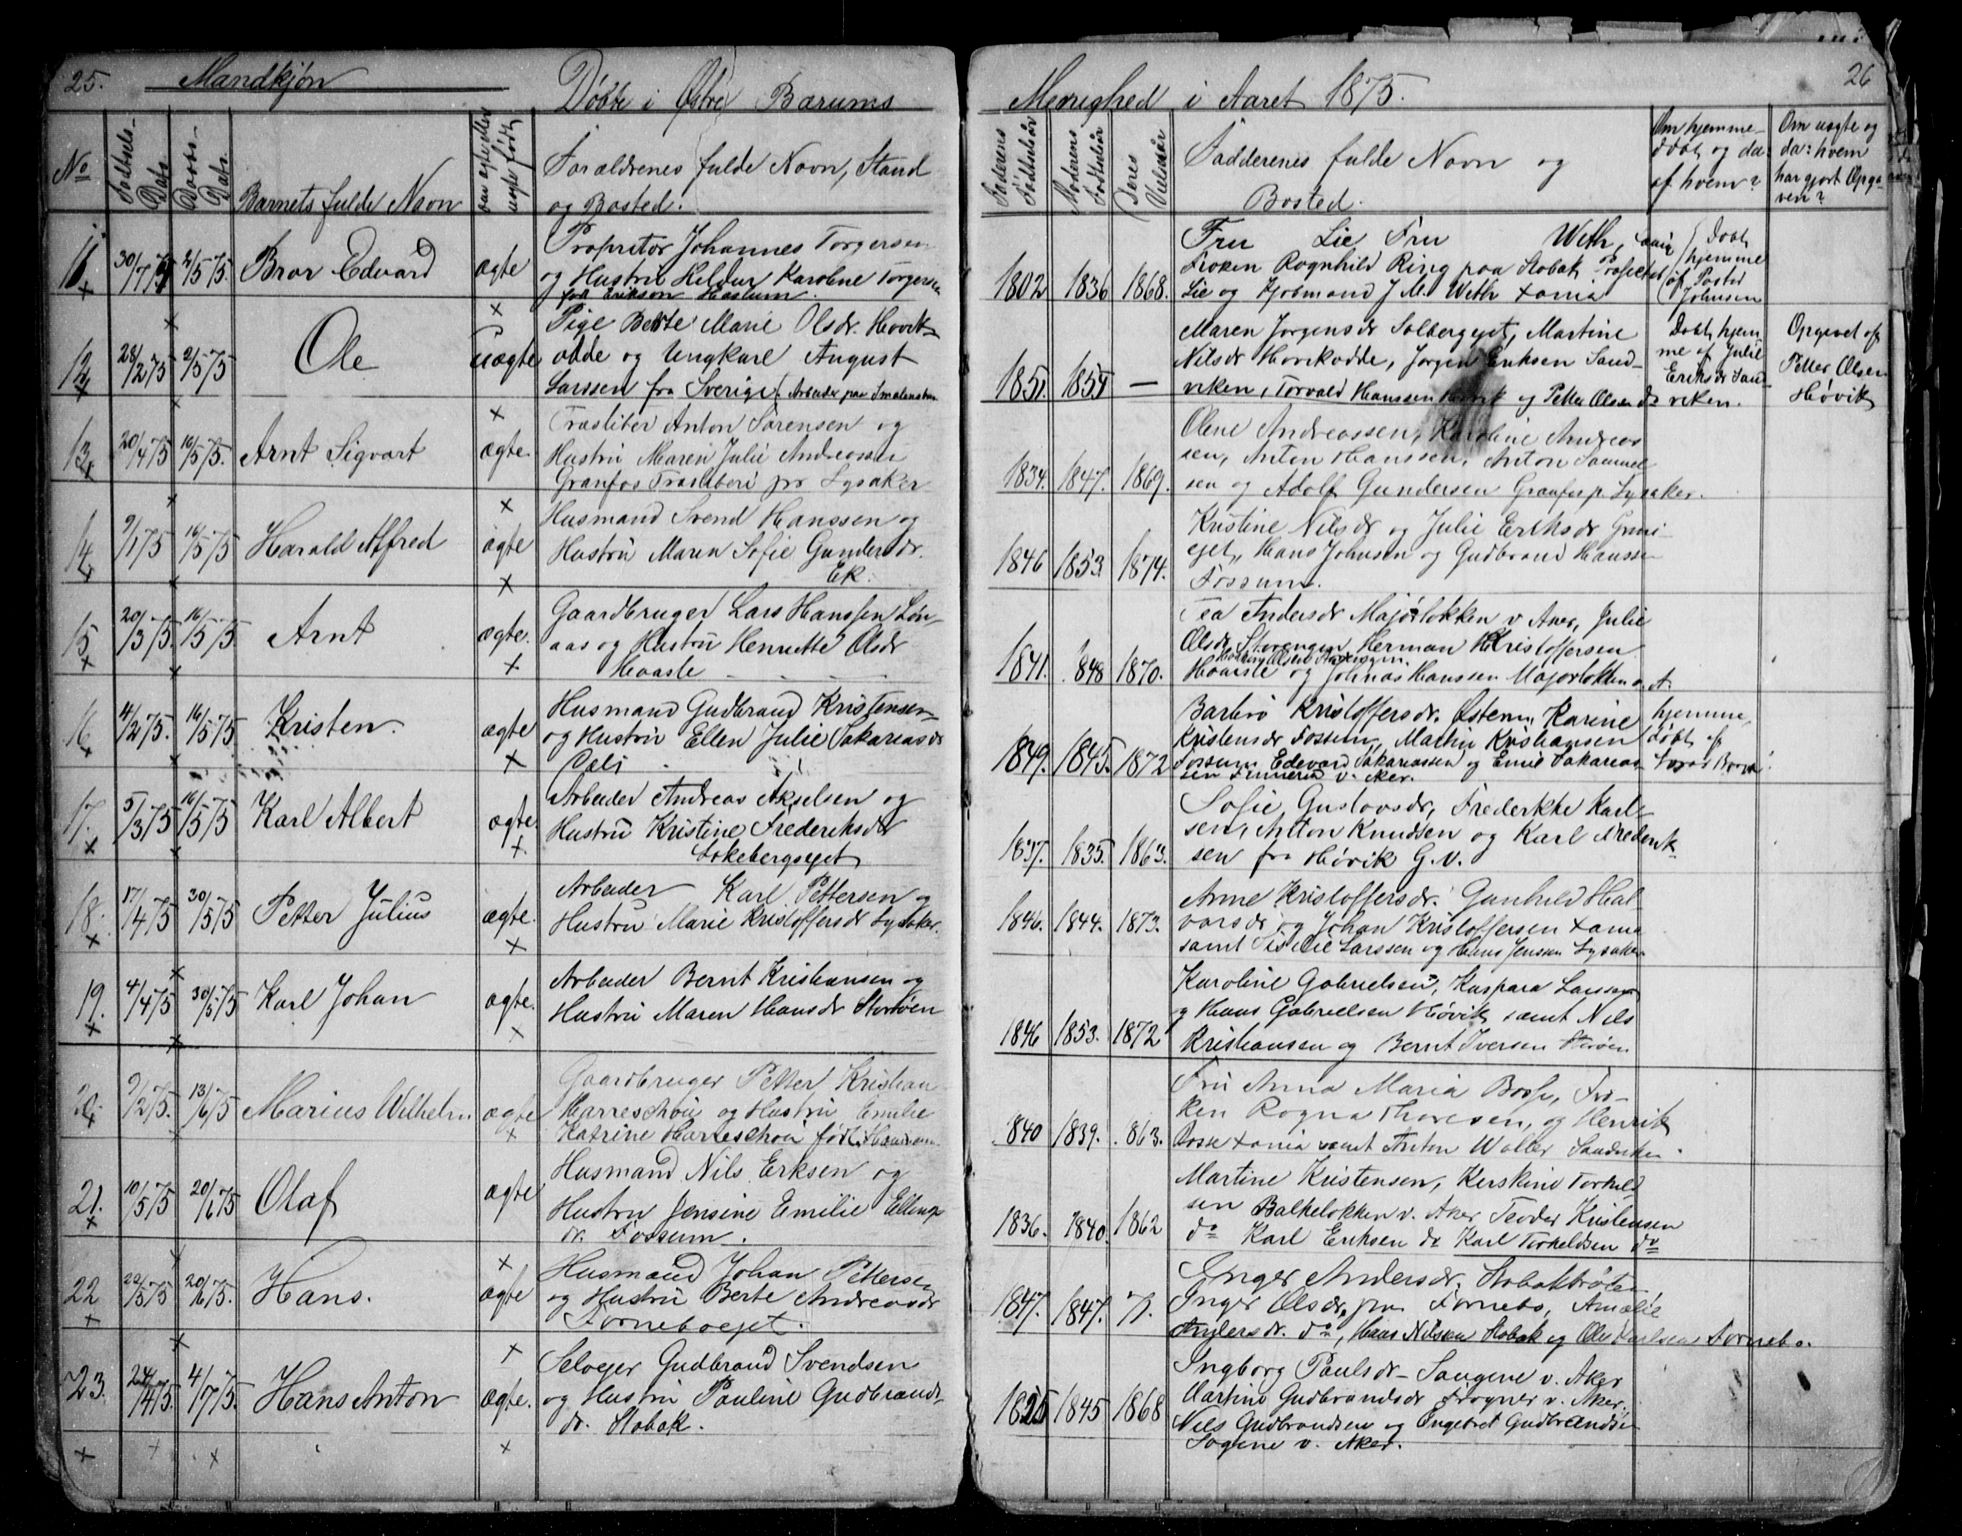 25. Mandkjøn
Døbte i Østre Bærums
Menighed i Aaret 1875.
26
No
Fødsels-Dato
Daabs-Dato
Barnets fulde Navn
om ægte eller uægte født
Forældrenes fulde Navn, Stand
og Bosted.
Faderens Fødselsår
Moderens Fødselsår
Deres Vielsesår
Faddernes fulde Navn og
Bosted.
Om hjemme-
døbt og da:
af hvem?
Om uægte og
da: hvem
har gjort Opga-
ven?
11
30/7 74
2/5 75.
Bror Edvard
ægte
Proprietør Johannes Torgersen
og Hustru Hildur Karoline Torgersen
født Erikson Haslum.
1802 1836 1868.
Fru Lie Fru Weth,
Frøken Ragnhild Ring paa Stabæk
Lie og Kjøbmand J. M. Weth Xania
Døbt
hjemme
af Pastor
Johnsen
12
28/2 75
2/5 75
Ole
uægte
Pige Berte Marie Olsdr. Høvik-
odde og Ungkarl August
Larssen fra Sverige, Arbeider paa
1851. 1854 —
Maren Jørgensdr Solbergejet, Martine
Nilsdr Høvikodde, Jørgen Eriksen Sand-
viken, Torvald Hanssen Høvik og Petter Olsen do
Døbt hjem-
me af Julie
Eriksdr Sand-
viken.
Opgivet af
Petter Olsen
Høvik
13
20/4 75
16/5 75.
Arnt Sigvart
ægte.
Træsliber Anton Sørensen og
Hustru Maren Julie Andreassen
Granfos Træsliberi pr Lysaker
1834. 1847. 1869.
Olene Andreassen, Karoline Andreas
sen, Anton Hanssen, Anton Samuel
sen og Adolf Gundersen Granfos p. Lysaker.
14
9/1 75
16/5 75
Harald Alfred
ægte
Husmand Svend Hanssen og
Hustru Maren Sofie Gundersdr.
Ek.
1846 1853. 1874.
Kristine Nilsdr og Julie Eriksdr Grini-
ejet, Hans Johnsen og Gudbrand Hanssen
Fossum.
15
20/3 75.
16/5 75
Arnt
ægte.
Gaardbruger Lars Hanssen Løn-
aas og Hustru Henriette Olsdr
Haasle
1841. 1848 1870.
Tea Andersdr Majorløkken v Aker, Julie
Olsdr Storengen Herman Kristoffersen
Haasle og Johnas Hanssen Majorløkken v. A.
16
4/2 75.
16/5 75
Kristen.
ægte
Husmand Gudbrand Kristensen
og Hustru Ellen Julie Sakariasdr
1849. 1845. 1872
Barbro Kristoffersdr. Østern, Karine
Kristensdr Fossum, Martin Kristiansen
Fossum, Edevard Sakariassen og Emil Sakarias
sen v. Aker.
hjemme
døbt af
17.
5/3 75
16/5 75
Karl Albert
ægte.
Arbeider Andreas Akselsen og
Hustru Kristine Frederiksdr
Løkebergsejet
1837. 1835. 1863.
Sofie Gustavsdr, Frederikke Karl-
sen, Anton Knudsen og Karl Frederik-
sen fra Høvik G.V.
18.
17/4 75
30/5 75
Petter Julius
ægte.
Arbeider Karl Pettersen og
Hustru Marie Kristoffersdr Lysaker.
1846. 1844. 1873.
Anne Kristoffersdr. Gunhild Hal-
varsdr og Johan Kristoffersen Xania
samt Larssen og Hans Jenssen Lysaker
19.
4/4 75
30/5 75
Karl Johan
ægte.
Arbeider Bernt Kristiansen og
Hustru Maren Hansdr Storøen
1846 1853. 1872
Karoline Gabrielsen, Kaspara Larssen
og Hans Gabrielsen Høvik samt Nils
Kristiansen og Bernt Iversen Storøen
20.
9/2 75.
13/6 75
Marius Wilhelm
ægte
Gaardbruger Petter Kristian
Harreschou og Hustru Emilie
Katrine Harreschou født
1840 1839. 1863.
Fru Anna Maria Bosse, Frø-
ken Ragna Thoresen, og Henrik
Bosse Xania samt Anton Walter Sandviken.
21.
10/5 75
20/6 75
Olaf
ægte
Husmand Nils Erksen og
Hustru Jensine Emilie Ellings
dr. Fossum.
1836. 1840. 1862
Martine Kristensen, Kerstine Torkild
sen Balkeløkken v. Aker Teodor Kristensen
do Karl Eriksen do Karl Torkeldsen do
22
22/5 75
20/6 75.
Hans.
ægte
Husmand Johan Pettersen
og Hustru Berte Andreasdr
Forneboejet.
1847. 1847. 71.
Inger Andersdr. Stabækbråten
Inger Olsdr, paa Fornebo, Amalie
Andersdr. do, Hans Nilsen Stabæk og Ole Karlsen Fornebo.
23.
24/4 75.
4/7 75.
Hans Anton
ægte.
Selveier Gudbrand Svendsen
og Hustru Pauline Gudbrands-
dr. Stabæk.
1825 1845 1868
Ingborg Paulsdr Sangene v. Aker
Martine Gudbrandsdr Frogner v. Aker,
Nils Gudbrandsen og Engebret Gudbrandsen
Sogene v. Aker.